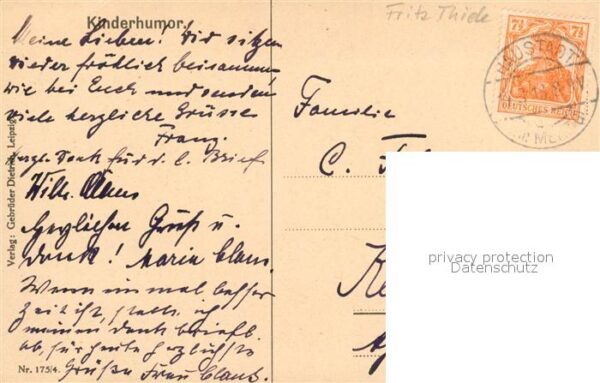 Kinderhumor.
Fritz Thiele
Meine Lieben! Wir sitzen
wieder fröhlich beisammen
wie bei Euch und senden
viele herzliche Grüsse
Franz.
Herzl. Dank für d. l. Brief
Wilh. Claus
Herzlichen Gruß u.
Dank! Maria Claus.
Wenn einmal besser
Zeit ist, statte ich
meinen Dank briefl.
ab, für heute herzlichste
Grüße Frau Claus.
Nr. 175/4.
Verlag: Gebrüder Dietrich, Leipzig
Familie
C.
7½ 7½
DEUTSCHES REICH
privacy protection
Datenschutz